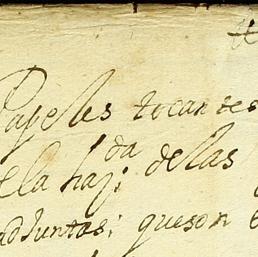 Papeles tocantes
ela haz.da de las
adJuntas; queson